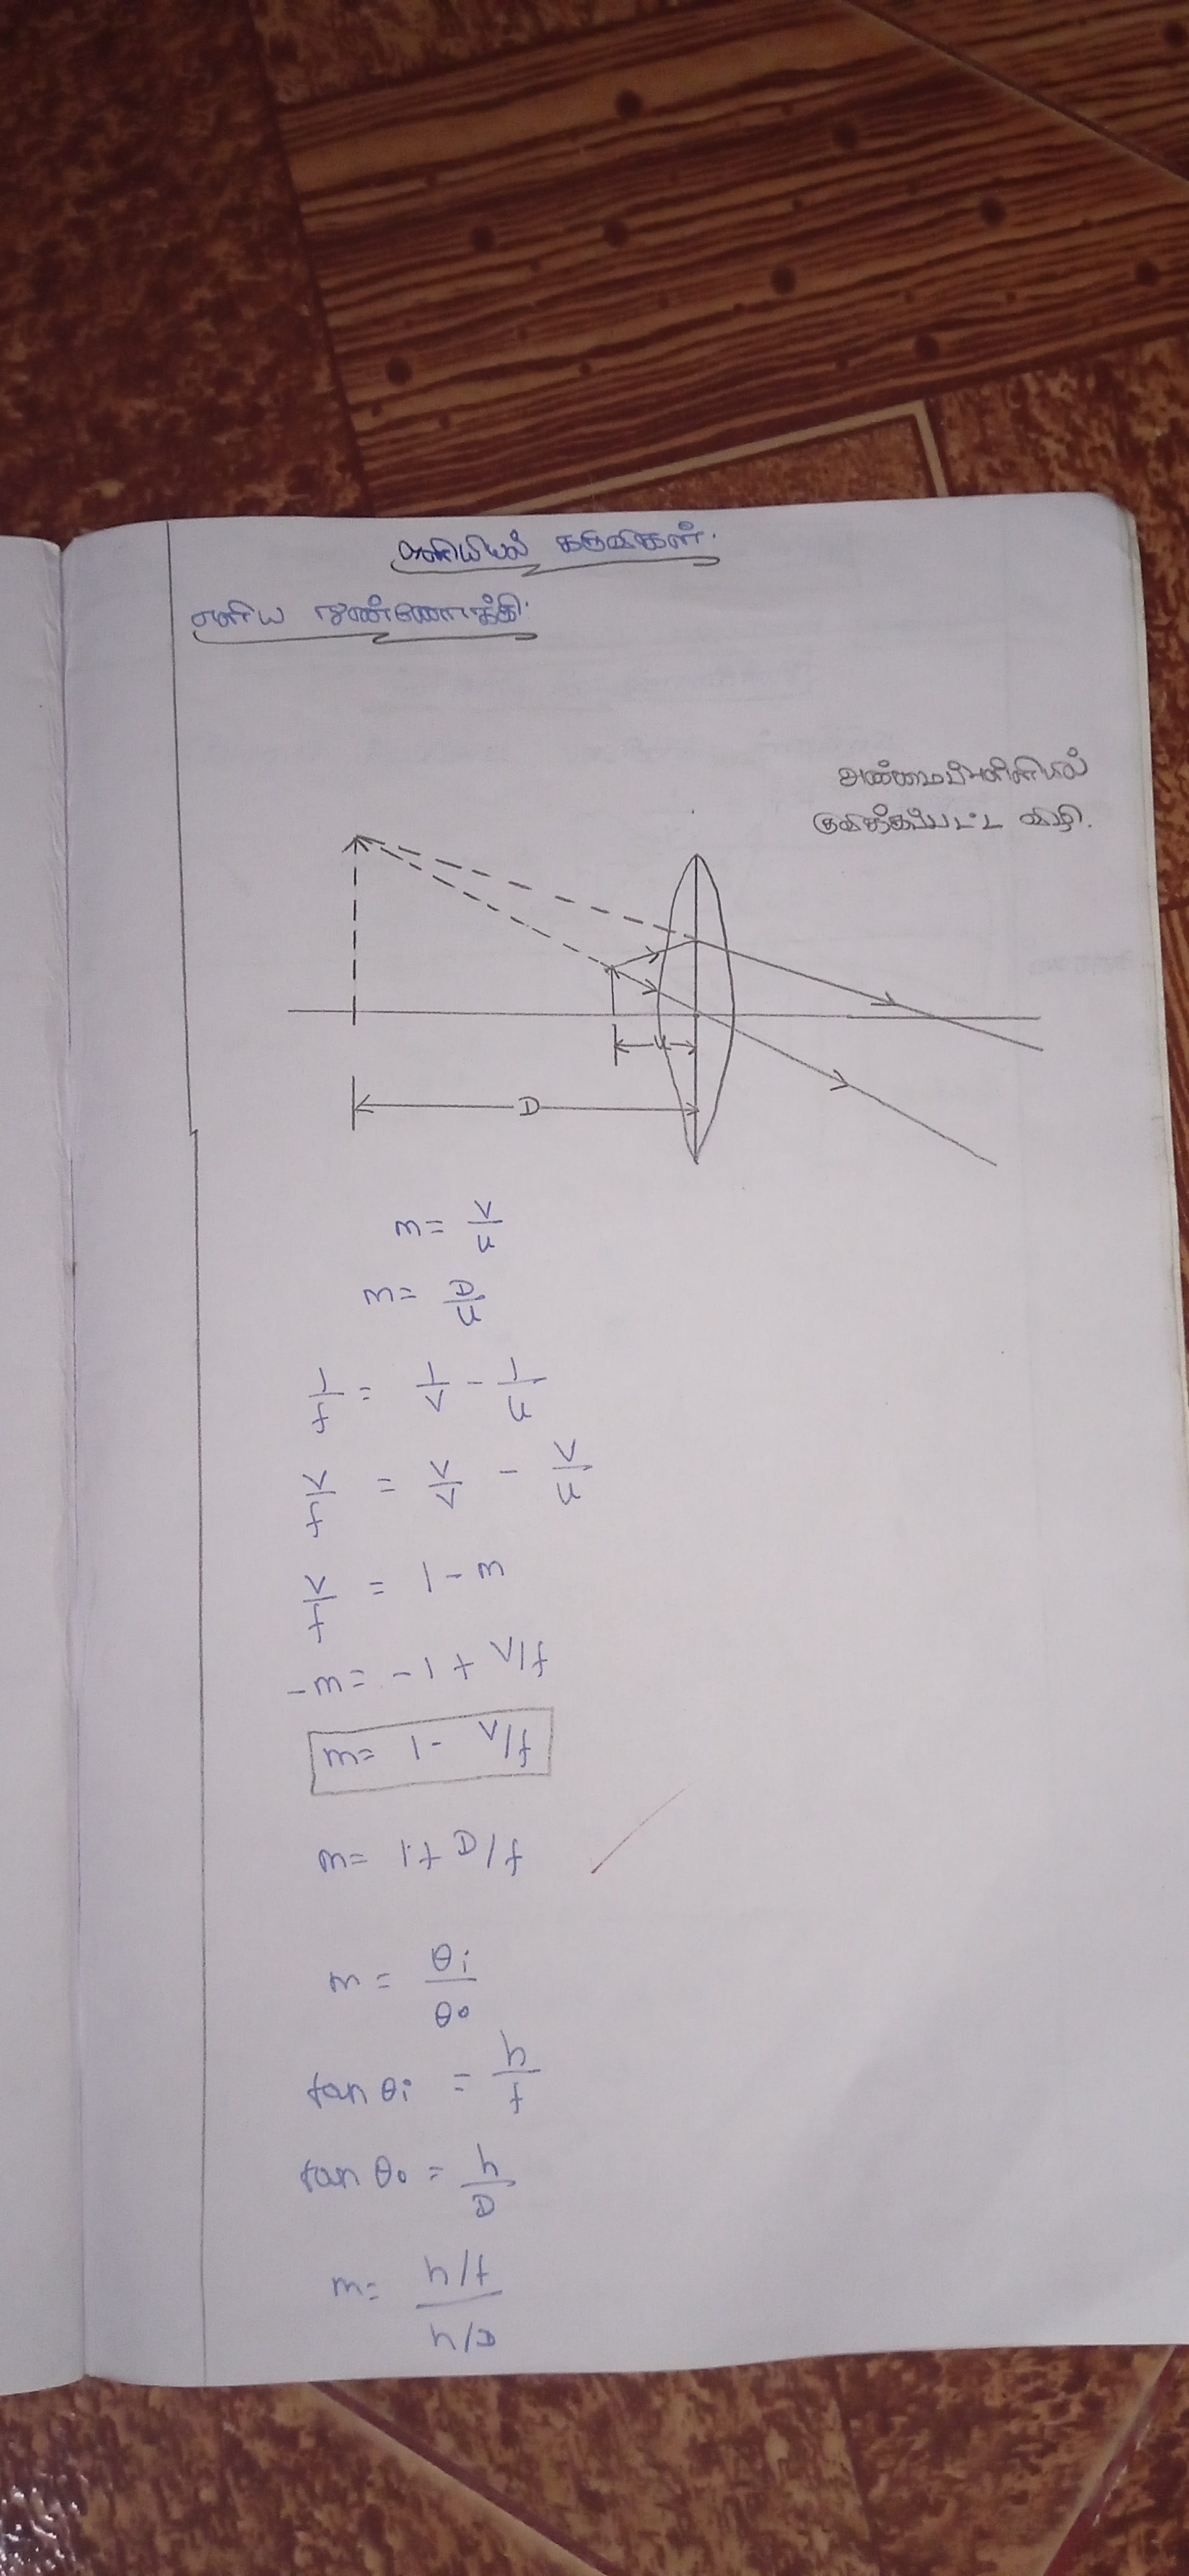 ஒளியியல் கருவிகள்.
எளிய நுண்ணோக்கி.
அண்மைப்புள்ளியில்
குவிக்கப்பட்ட விழி.
u
D
m = v/u
m = D/u
1/f = 1/v - 1/u
v/f = v/v - v/u
v/f = 1 - m
-m = -1 + v/f
m = 1 - v/f
m = 1 + D/f
m = θi/θo
tan θi = h/f
tan θo = h/D
m = h/f / h/D